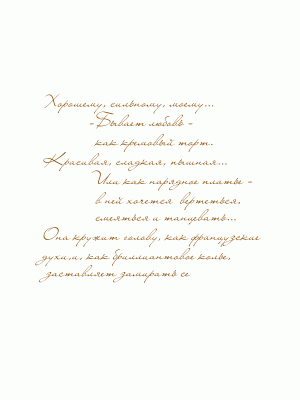 Хорошему, сильному, моему...
-Бывает любовь -
как кремовый торт.
Красивая, сладкая, пышная...
Или как нарядное платье -
в ней хочется вертеться,
смеяться и танцевать...
Она кружит голову, как французские
духи,и, как бриллиантовое колье,
заставляет замирать се